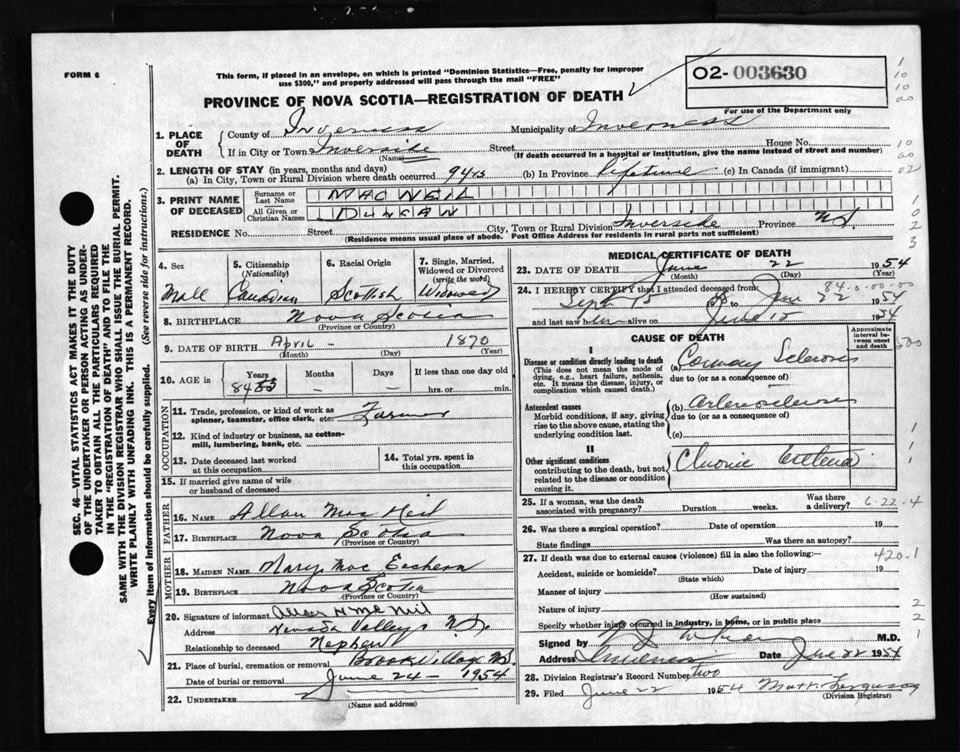 FORM 6
This form, if placed in an envelope, on which is printed "Dominion Statistics—Free, penalty for improper
use $300," and properly addressed will pass through the mail "FREE"
O2- 003630
PROVINCE OF NOVA SCOTIA—REGISTRATION OF DEATH
For use of the Department only
1. PLACE OF DEATH
County of Inverness Municipality of Inverness
If in City or Town Inverside Street House No.
(Name) (If death occurred in a hospital or institution, give the name instead of street and number)
2. LENGTH OF STAY (in years, months and days)
(a) In City, Town or Rural Division where death occurred 9 yrs (b) In Province lifetime (c) In Canada (if immigrant)
3. PRINT NAME OF DECEASED
Surname or Last Name MAC NEIL
All Given or Christian Names DUNCAN
RESIDENCE No. Street City, Town or Rural Division Inverside Province N.S.
(Residence means usual place of abode. Post Office Address for residents in rural parts not sufficient)
4. Sex
Mall
5. Citizenship
(Nationality)
Canadian
6. Racial Origin
Scottish
7. Single, Married,
Widowed or Divorced
(write the word)
Widowed
8. BIRTHPLACE Nova Scotia
(Province or Country)
9. DATE OF BIRTH April - 1870
(Month) (Day) (Year)
10. AGE in
Years Months Days If less than one day old
84 83 - - hrs. or min.
OCCUPATION
11. Trade, profession, or kind of work as
spinner, teamster, office clerk, etc. Farmer
12. Kind of industry or business, as cotton-
mill, lumbering, bank, etc.
13. Date deceased last worked
at this occupation
14. Total yrs. spent in
this occupation
15. If married give name of wife
or husband of deceased
FATHER
16. NAME Allan Mac Neil
17. BIRTHPLACE Nova Scotia
(Province or Country)
MOTHER
18. MAIDEN NAME Mary Mac Eachern
19. BIRTHPLACE Nova Scotia
(Province or Country)
20. Signature of informant Allan H Mc Neil
Address Nevada Valley N.S.
Relationship to deceased Nephew
21. Place of burial, cremation or removal Brook Village N.S.
Date of burial or removal June 24 - 1954
22. UNDERTAKER
(Name and address)
MEDICAL CERTIFICATE OF DEATH
23. DATE OF DEATH June 22 1954
(Month) (Day) (Year)
84-0-00-00
24. I HEREBY CERTIFY that I attended deceased from:
Sept 15 to June 22 1954
and last saw him alive on June 15 1954
CAUSE OF DEATH
Approximate interval between onset and death
I
Disease or condition directly leading to death
(This does not mean the mode of
dying, e.g., heart failure, asthenia,
etc. It means the disease, injury, or
complication which caused death.)
(a) Sclerosis
due to (or as a consequence of)
Antecedent causes
Morbid conditions, if any, giving
rise to the above cause, stating the
underlying condition last.
(b) Arteriosclerosis
due to (or as a consequence of)
(c)
II
Other significant conditions
contributing to the death, but not
related to the disease or condition
causing it.
Chronic
25. If a woman, was the death
associated with pregnancy? Duration weeks. Was there
a delivery?
6-22-4
26. Was there a surgical operation? Date of operation 19
State findings Was there an autopsy?
27. If death was due to external causes (violence) fill in also the following:—
420.1
Accident, suicide or homicide? Date of injury 19
(State which)
Manner of injury
(How sustained)
Nature of injury
Specify whether injury occurred in industry, in home, or in public place
Signed by M.D.
Address Date June 22 1954
28. Division Registrar's Record Number two
29. Filed June 22 1954 Matt. Ferguson
(Division Registrar)
SEC. 46—VITAL STATISTICS ACT MAKES IT THE DUTY
OF THE UNDERTAKER OR PERSON ACTING AS UNDER-
TAKER TO OBTAIN ALL THE PARTICULARS REQUIRED
IN THE "REGISTRATION OF DEATH" AND TO FILE THE
SAME WITH THE DIVISION REGISTRAR WHO SHALL ISSUE THE BURIAL PERMIT.
WRITE PLAINLY WITH UNFADING INK. THIS IS A PERMANENT RECORD.
Every item of information should be carefully supplied. (See reverse side for instructions.)